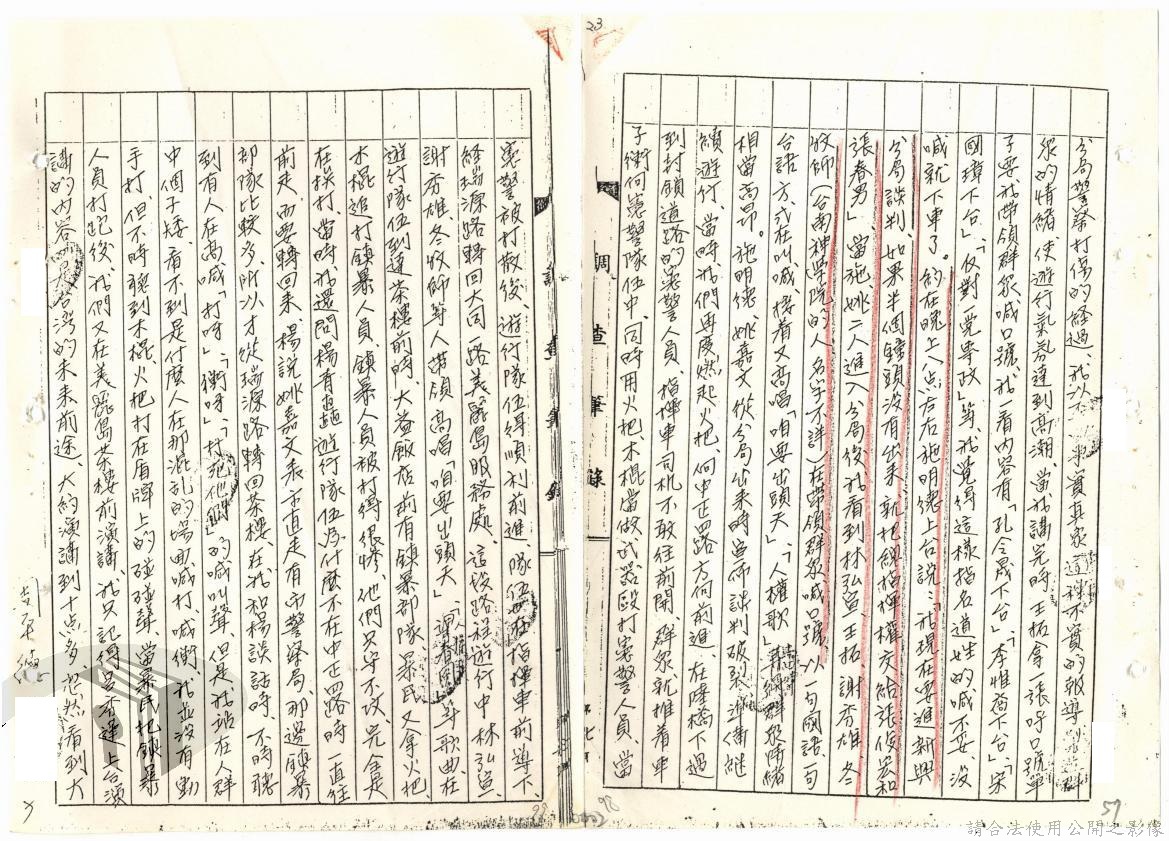 23
分局警察打傷的經過、我以 事實真象 這種不實的報導、刺激群
眾的情緒使遊行氣氛達到高潮、當我講完時王拓拿一張呼口號單
子要我帶領群眾喊口號、我一看內容有「孔令晟下台」「李惟喬下台」「宋
國璋下台」「反對党專政」等、我覺得這樣指名道姓的喊不妥、沒
喊就下車了。約在晚上八点左右施明德上台說：「我現在要進新興
分局談判、如果半個鐘頭沒有出來、就把總指揮權交給張俊宏和
張春男」、當施姚二人進入分局後、我看到林弘宣、王拓、謝秀雄、冬
牧師（台南神學院的人、名字不詳）在帶領群眾喊口號、以一句國語一句
台語方式在叫喊、接着又高唱「咱要出頭天」、「人權歌」 群情緒
相當高昂。施明德、姚嘉文從分局出來時宣佈談判破裂、準備繼
續遊行、當時我們再度燃起火把、向中正路方向前進、在陸橋下遇
到封鎖道路的憲警人員、指揮車司机不敢往前開、群眾就推着車
子衝向憲警隊伍中、同時用火把木棍當做武器毆打憲警人員、當
調查筆錄
第七頁
57
98
調查筆錄
憲警被打散後、遊行隊伍得順利前進、隊伍在指揮車前導下、
經瑞源路轉回大同一路美麗島服務處、這段路程遊行中林弘宣、
謝秀雄、冬牧師等人帶領高唱「咱要出頭天」 等歌曲、在
遊行隊伍到達茶樓前時、大益飯店前有鎮暴部隊、暴民又拿火把
木棍追打鎮暴人員、鎮暴人員被打得很慘、他們只守不攻、完全是
在挨打、當時我還問楊青矗遊行隊伍為什麼不在中正路時一直往
前走、而要轉回來、楊說姚嘉文表示直走有市警察局、那邊鎮暴
部隊比較多、所以才從瑞源路轉回茶樓、在我和楊談話時、不時聽
到有人在高喊「打呀」、「衝呀」、「打死他們」的喊叫聲、但是我站在人群
中個子矮、看不到是什麼人在那混乱的場面喊打喊衝、我並沒有動
手打、但不時聽到木棍火把打在盾牌上的碰碰聲、當暴民把鎮暴
人員打跑後、我們又在美麗島茶樓前演講、我只記得呂秀蓮上台演
講的內容是台灣的未來前途、大約演講到十点多、忽然看到大
98
請合法使用公開之影像